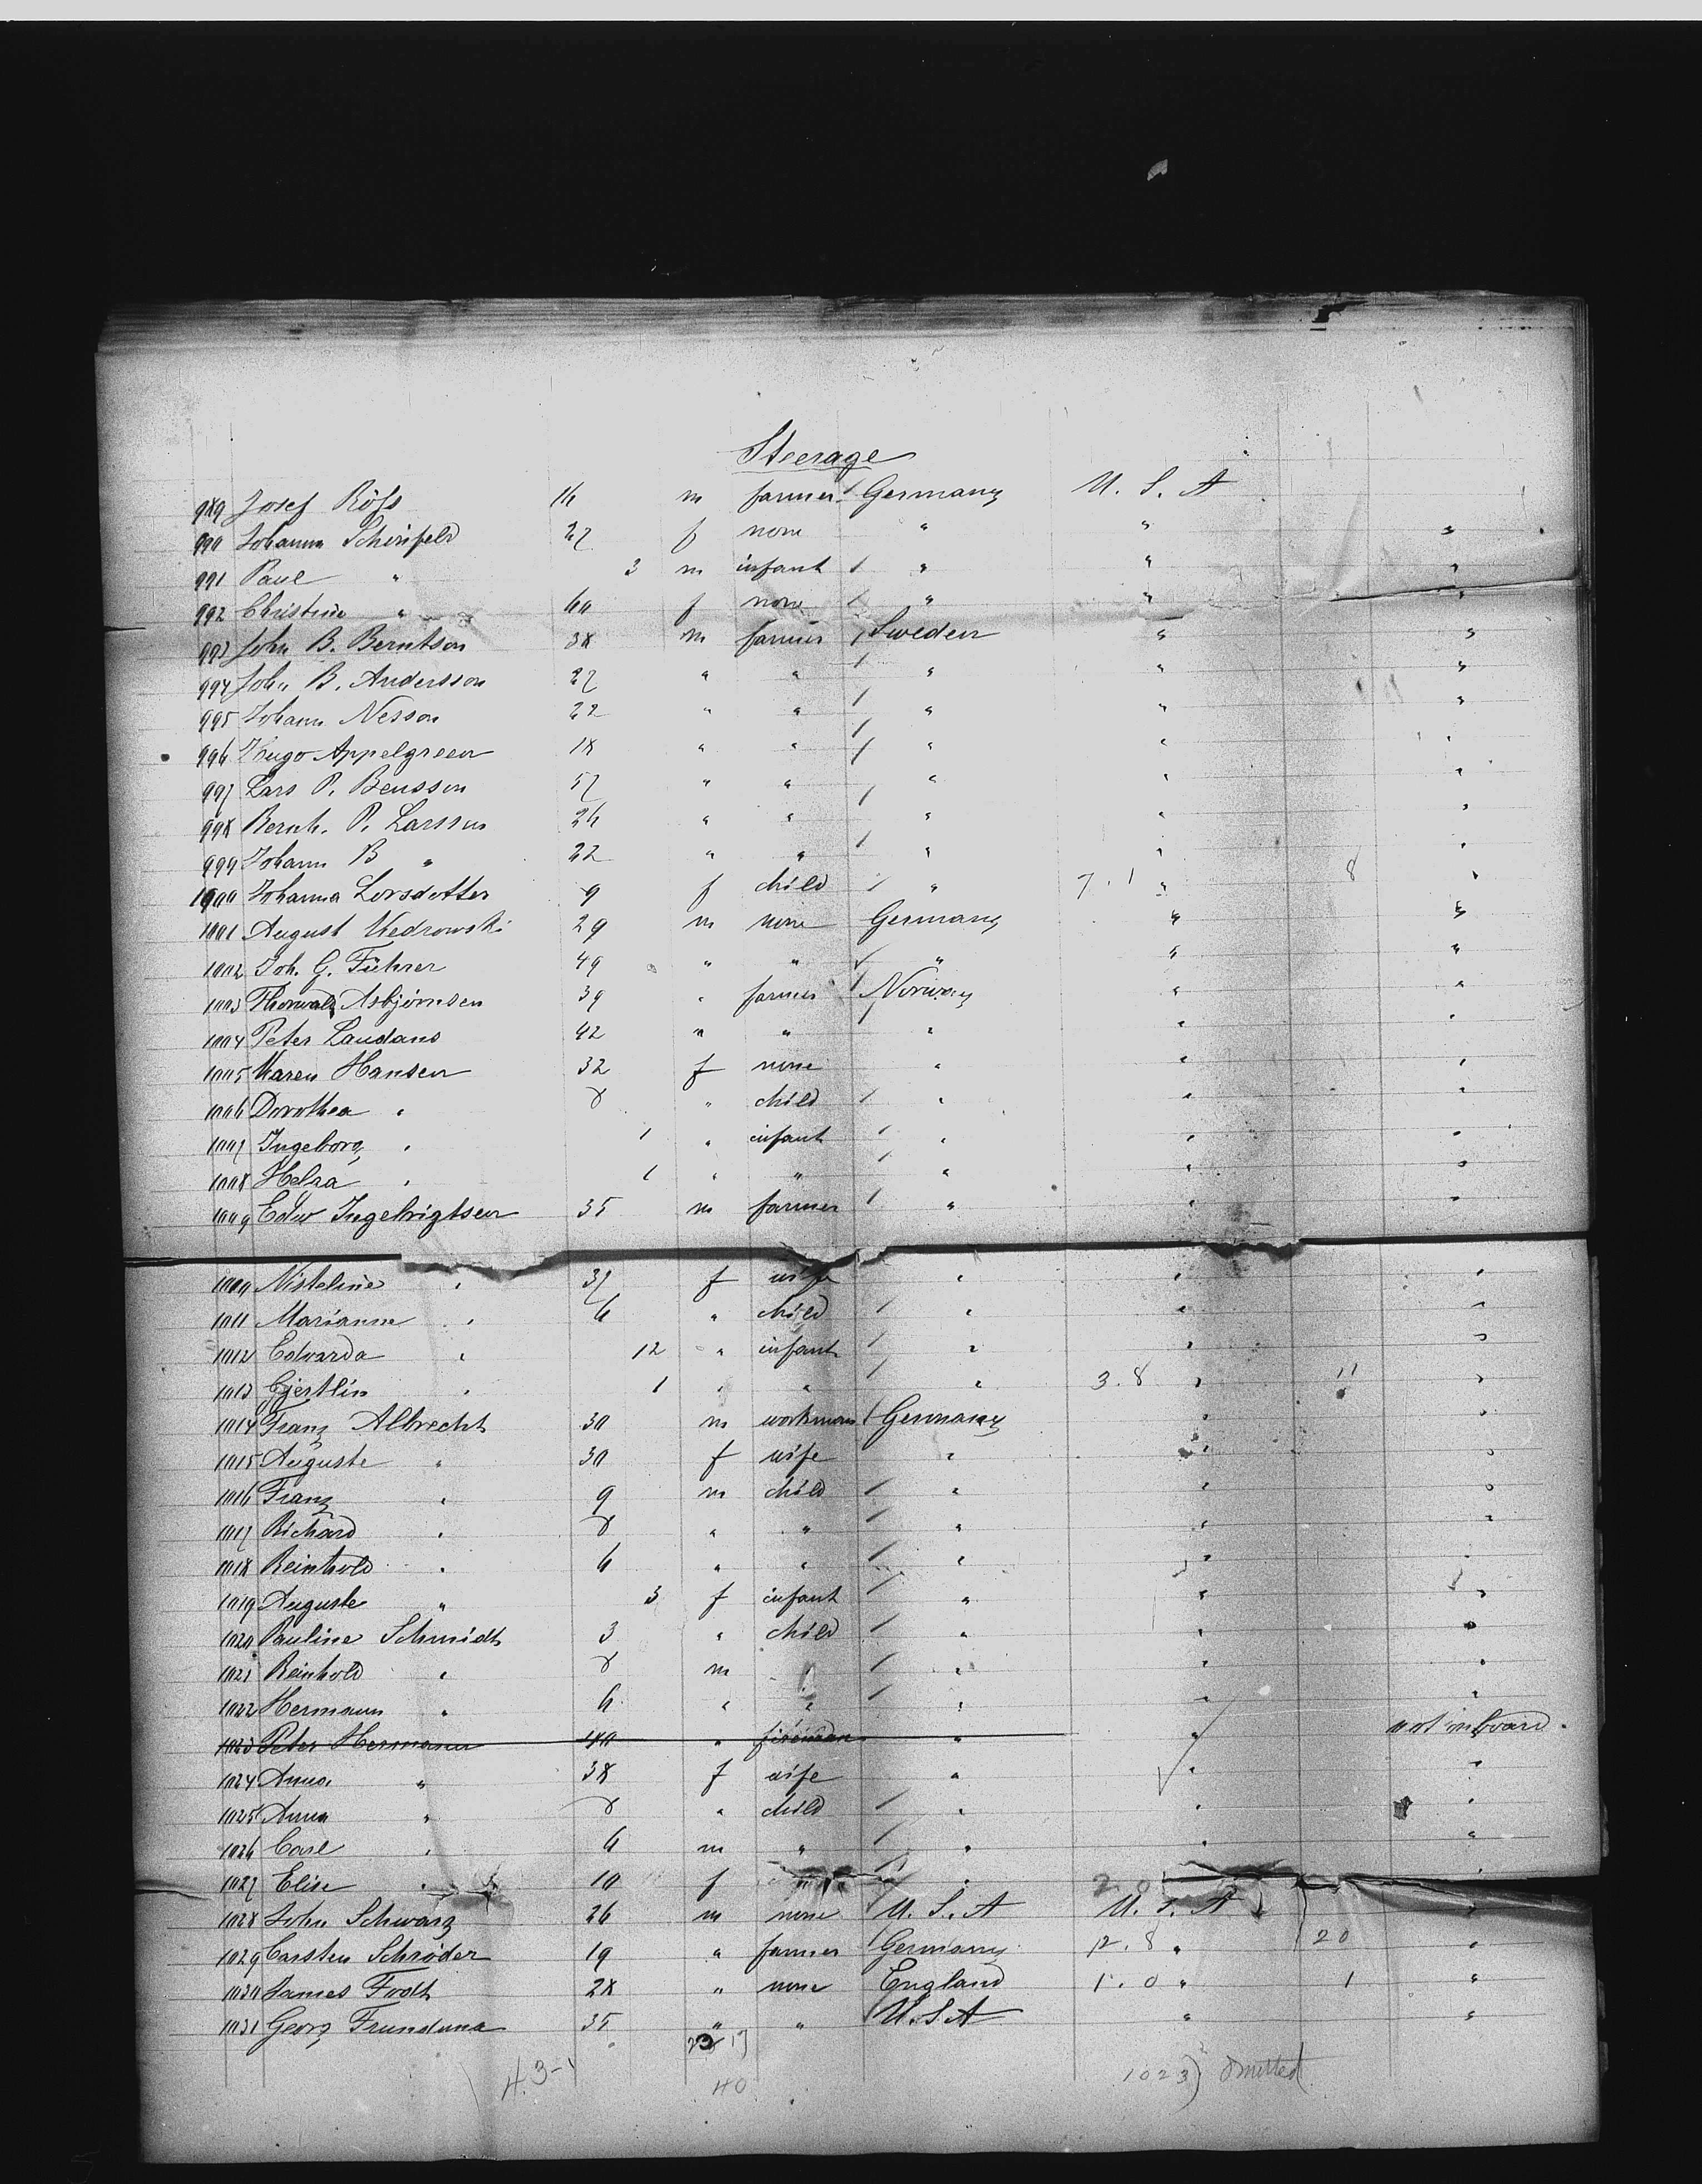 Steerage
989 Josef Röfs 16 m farmer / Germany U. S. A
990 Johanna Schinfeld 27 f none " " "
991 Paul " 3 m infant / " " "
992 Christine " 60 f none / " " "
993 John B. Berntson 38 m farmer / Sweden " "
994 Joh. B. Andersson 27 " " / " " "
995 Johann Nesson 22 " " / " " "
996 Hugo Appelgreen 18 " " / " " "
997 Lars P. Beusson 57 " " " " "
998 Bernh. P. Larsson 26 " " / " " "
999 Johann B " 22 " " / " " "
1000 Johanna Lorsdotter 9 f child / " 7.1 " 8 "
1001 August Medrowski 29 m none Germany " "
1002 Joh. G. Führer 49 " " / " " "
1003 Thorwald Asbjörnsen 39 " farmer / Norway " "
1004 Peter Laudans 42 " " / " " "
1005 Maren Hansen 32 f none " " "
1006 Dorothea " 8 " child / " " "
1007 Ingeborg " 1 " infant / " " "
1008 Helga " 1 " " / " " "
1009 Edw Ingebrigtsen 35 m farmer / " " "
Nisteline " 37 f wife " " "
1011 Marianne " 6 " child / " " "
1012 Edvarda " 12 " infant / " " "
1013 Gjertlin " 1 " " / " 3.8 " 11 "
1014 Franz Albrecht 30 m workman / Germany " "
1015 Auguste " 30 f wife " " "
1016 Franz " 9 m child / " " "
1017 Richard " 8 " " / " " "
1018 Reinhold " 6 " " / " " "
1019 Auguste " 3 f infant / " " "
1020 Pauline Schmidt 3 " child / " " "
1021 Reinhold " 8 m " / " " "
1022 Hermann " 6 " " / " " "
1023 Peter Hermann 40 " fireman " " not on board.
1024 Anna " 38 f wife " " "
1025 Anna " 8 " child / " " "
1026 Carl " 6 m " / " " "
1027 Elise " 10 f " / " 2.0 "
1028 John Schwarz 26 m none U. S. A U. S. A "
1029 Carsten Schröder 19 " farmer / Germany 12.8 " 20 "
1030 James Frodt 28 " none England 1.0 " 1 "
1031 Georg Frunduna 35 " " U. S A " "
17
43-1 40 1023) omitted